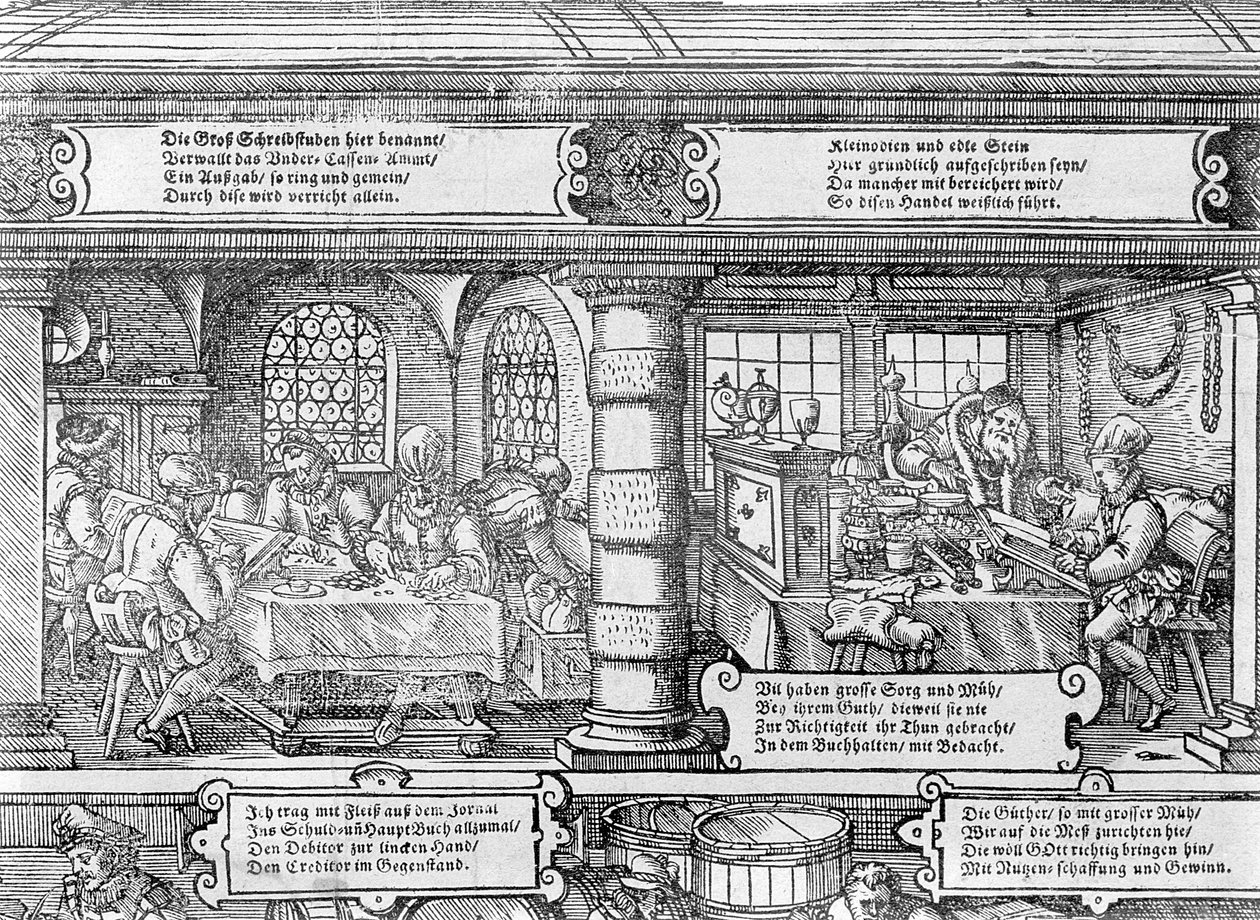 Die Groß Schreibstuben hier benannt/
Verwallt das Vnder- Cassen- Ammt/
Ein Außgab/ so ring und gemein/
Durch dise wird verricht allein.
Kleinodien und edle Stein
Hier gründlich aufgeschriben seyn/
Da mancher mit bereichert wird/
So disen Handel weißlich führt.
Vil haben grosse Sorg und Müh/
Bey ihrem Guth/ dieweil sie nie
Zur Richtigkeit ihr Thun gebracht/
In dem Buchhalten/ mit Bedacht.
Ich trag mit Fleiß auß dem Jornal
Ins Schuld-uñ Haupt Buch allzumal/
Den Debitor zur lincken Hand/
Den Creditor im Gegenstand.
Die Güther/ so mit grosser Müh/
Wir auf die Meß zurichten hie/
Die wöll GOtt richtig bringen hin/
Mit Nutzen- schaffung und Gewinn.